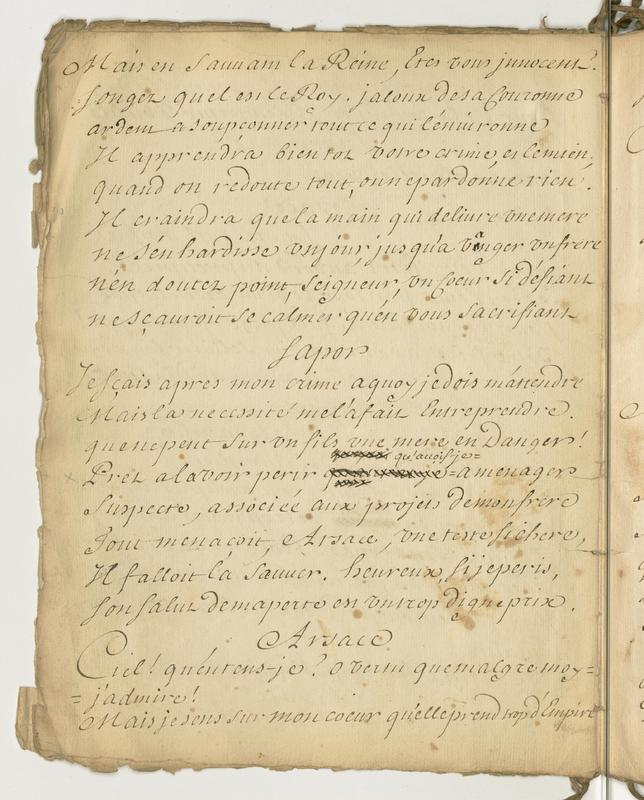 Mais en sauuant la Reine, Etes vous jnnocent?
songez quel est le Roy. jaloux de sa Couronne
ardent a soupçonner tout ce qui l'énuironne
Il apprendra bien tot votre crime, et le mien,
quand on redoute tout, on ne pardonne rien.
Il craindra que la main qui deliure vne mere
ne s'enhardisse vn jour, jusqu'a vanger vn frere
n'én doutez point, seigneur, vn Coeur si défiant
ne sçauroit se calmer qu'én vous sacrifiant
Sapor
Je sçais apres mon crime a quoy je dois m'attendre
Mais la necessité me l'a fait Entreprendre.
que ne peut sur vn fils vne mere en Danger!
qu'auois-je=
Prez a la voir perir =a menager
suspecte, associée aux projets de mon frere
Tout menaçoit, Arsace, vne teste si chere,
Il falloit la sauuer. heureux, si je peris,
son salut de ma perte est vn trop digne prix.
Arsace
Ciel! qu'éntens-je? o vertu que malgre moy=
=j'admire!
Mais je sens sur mon coeur qu'elle prend trop d'Empire